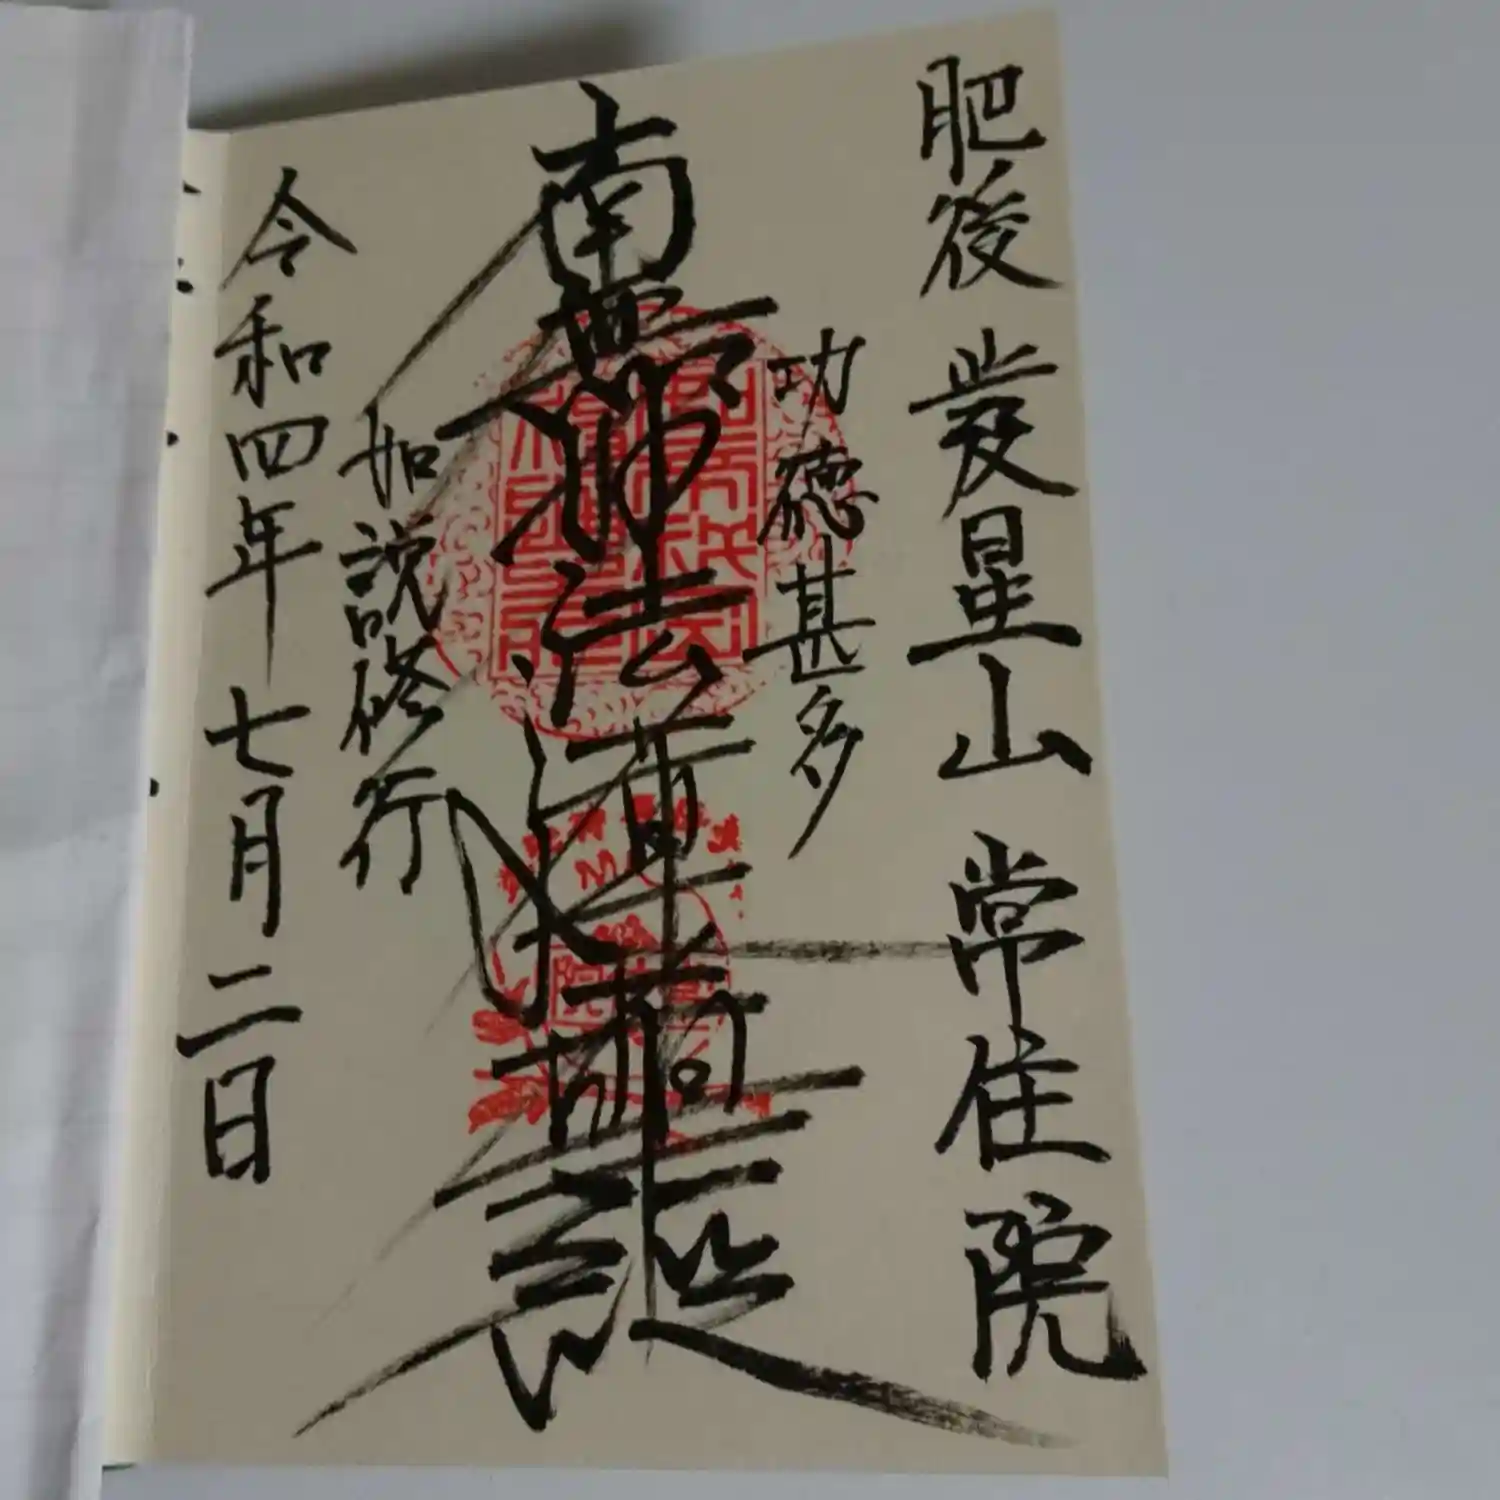 肥後 發星山 常住院
功徳甚多
南無妙法蓮華経
如説修行
令和四年 七月二日